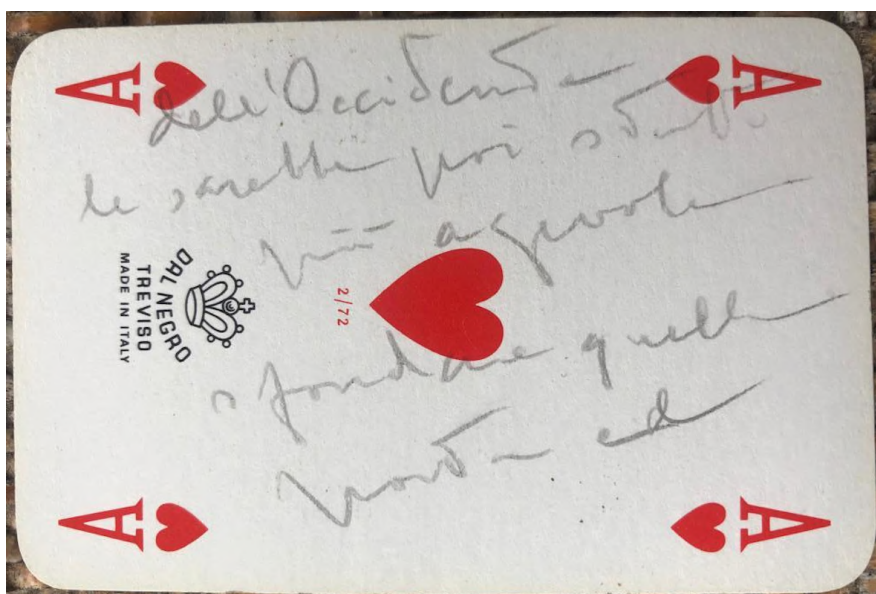 A
A
dell'Occidente
le sarebbe poi stata
più agevole
sfondare quella
porta ed
DAL NEGRO
TREVISO
MADE IN ITALY
2/72
A
A